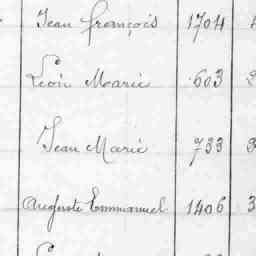 Jean François 1704
Léon Marie 603
Jean Marie 733
Auguste Emmanuel 1406 3